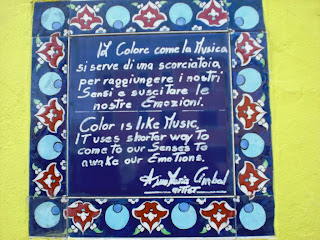 Il Colore come la Musica
si serve di una scorciatoia
per raggiungere i nostri
Sensi e suscitare le
nostre Emozioni.
Color is like Music.
IT uses shorter way To
come to our Senses To
awake our Emotions.
artist